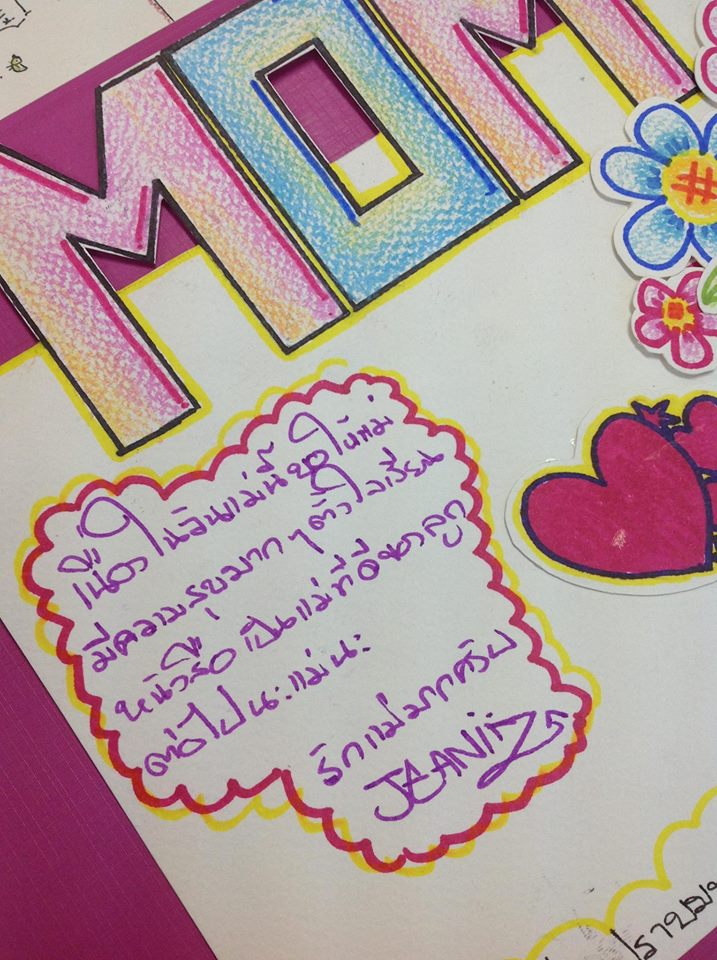 MOM
#
เนื่องในวันแม่นี้ขอให้แม่
มีความสุขมาก ๆ ตั้งใจเรียน
หนังสือ เป็นแม่ที่ดีของลูก
ต่อไปนะแม่นะ
รักแม่มากครับ